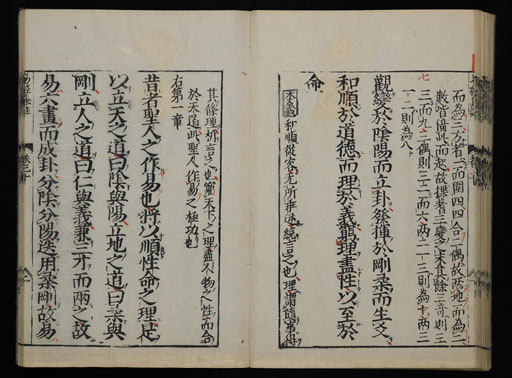 而為三方者一而圍四四合二偶故兩地而為二
數皆倚此而起故揲蓍三變之末其餘三奇則三
三而九三偶則三二而六兩二一三則為七兩三
一二則為八
觀變於陰陽而立卦發揮於剛柔而生爻
和順於道德而理於義窮理盡性以至於
命
本義和順從容无所乖逆統言之也理謂隨事得
其條理析言之也窮天下之理盡人物之性而合
於天道此聖人作易之極功也
右第一章
昔者聖人之作易也將以順性命之理是
以立天之道曰陰與陽立地之道曰柔與
剛立人之道曰仁與義兼三才而兩之故
易六畫而成卦分陰分陽迭用柔剛故易